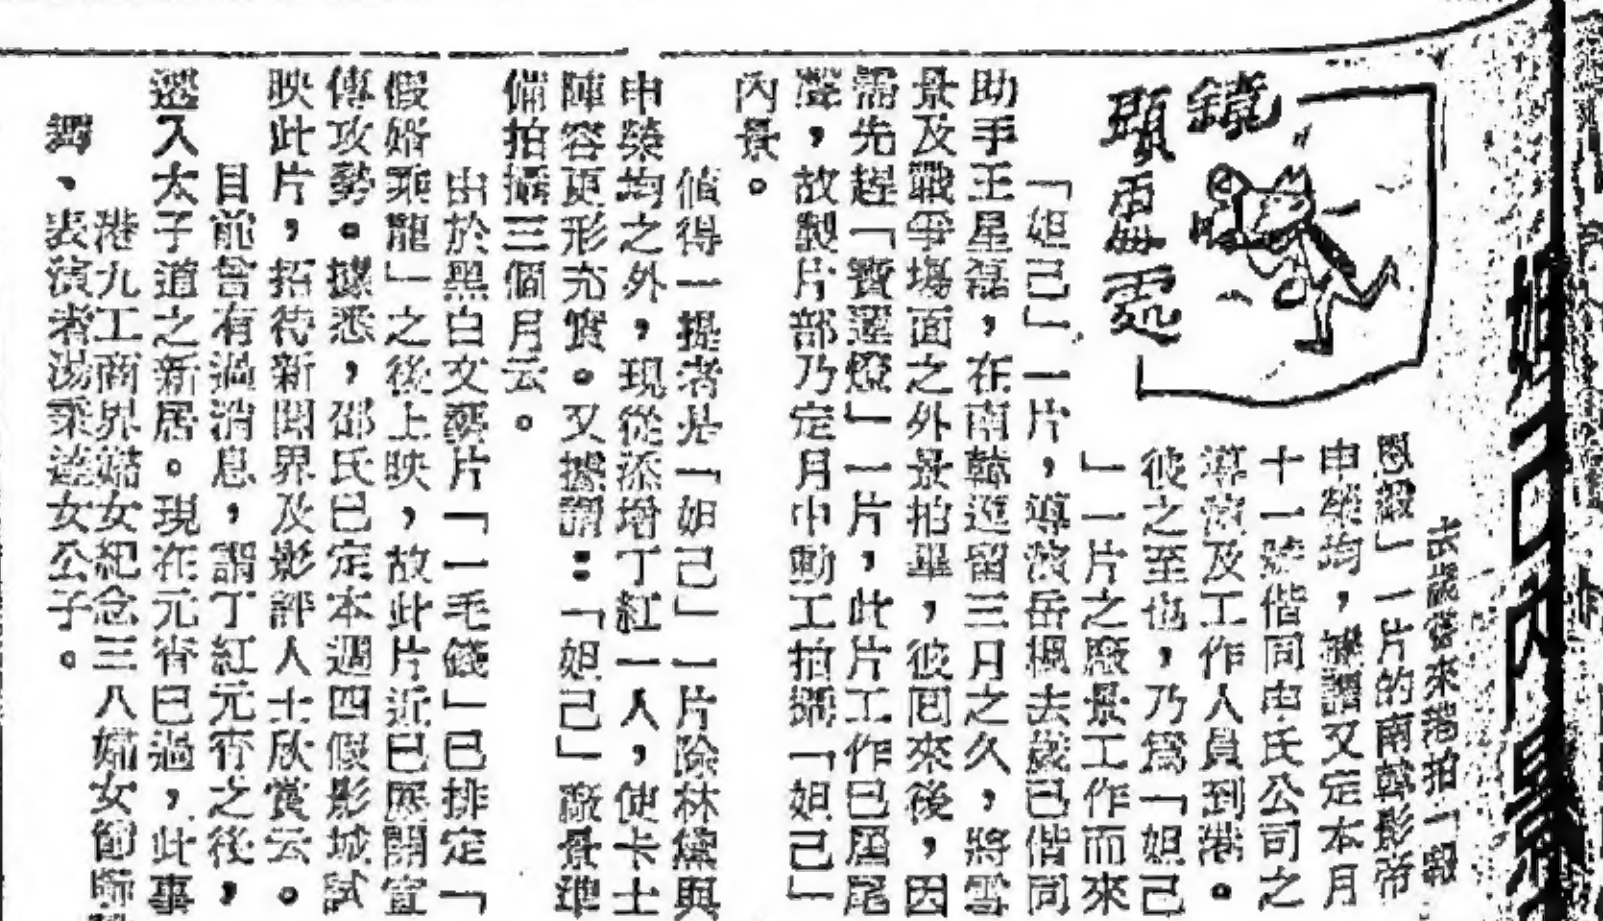 妲己內景
鏡
頭
去歲曾來港拍「毀
恩緞」一片的南韓影帝
申榮均，據謂又定本月
十一號偕同申氏公司之
導演及工作人員到港。
彼之至也，乃為「妲己
」一片之廠景工作而來
「妲己」一片，導演岳楓去歲已偕同
助手王星磊，在南韓逗留三月之久，將雪
景及戰爭場面之外景拍畢，彼囘來後，因
需先趕「寶蓮燈」一片，此片工作已屆尾
聲，故製片部乃定月中動工拍攝「妲己」
內景。
值得一提者是「妲己」一片除林黛與
申榮均之外，現從添增丁紅一人，使卡士
陣容更形充實。又據謂：「妲己」廠景準
備拍攝三個月云。
由於黑白文藝片「一毛錢」已排定「
假婿乘龍」之後上映，故此片近已展開宣
傳攻勢。據悉，邵氏已定本週四假影城試
映此片，招待新聞界及影評人士欣賞云。
目前曾有過消息，謂丁紅元宵之後，
遷入太子道之新居。現在元宵已過，此事
港九工商界婦女紀念三八婦女節
、表演者湯秉達女公子。